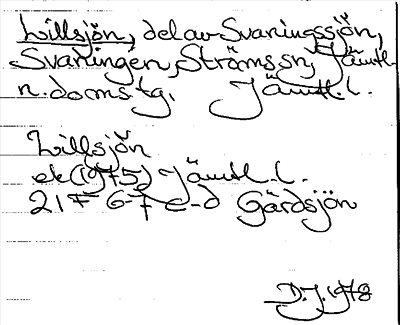 Lillsjön, del av Svaningssjön,
Svaningen, Ströms sn, Jämtl.
n. doms.tg. Jämtl. l.
Lillsjön
ek (1975) Jämtl. l.
21 F 6-7 c-d Gärdsjön
D.J. 1978